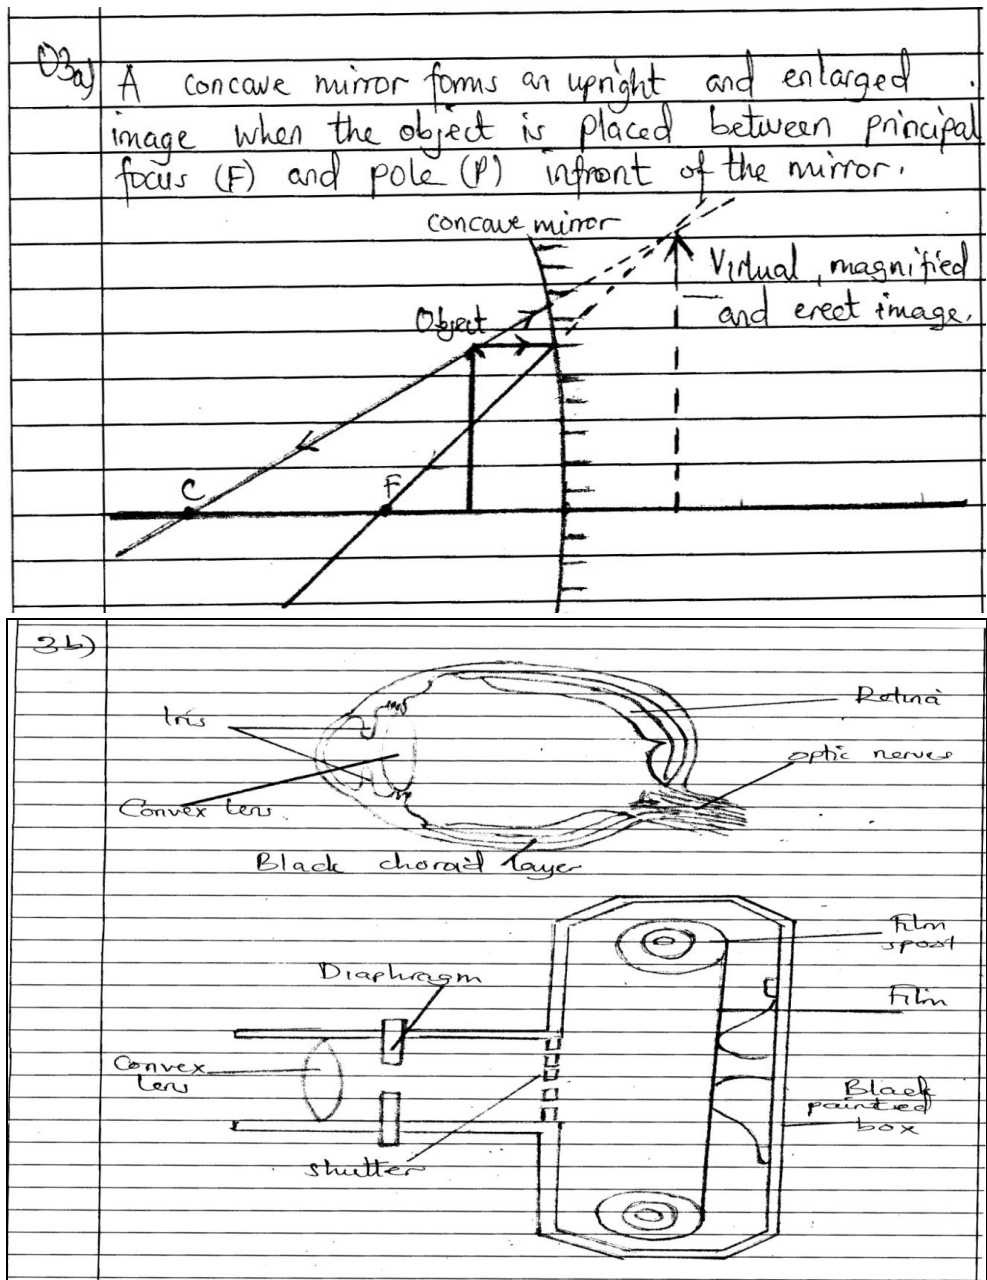 Q3a) A concave mirror forms an upright and enlarged
image when the object is placed between principal
focus (F) and pole (P) infront of the mirror.
concave mirror
Virtual, magnified
and erect image.
Object
C
F
3b)
Iris
Retina
optic nerves
Convex lens
Black choroid layer
Film
spool
Diaphragm
Film
Convex
lens
Black
painted
box
shutter